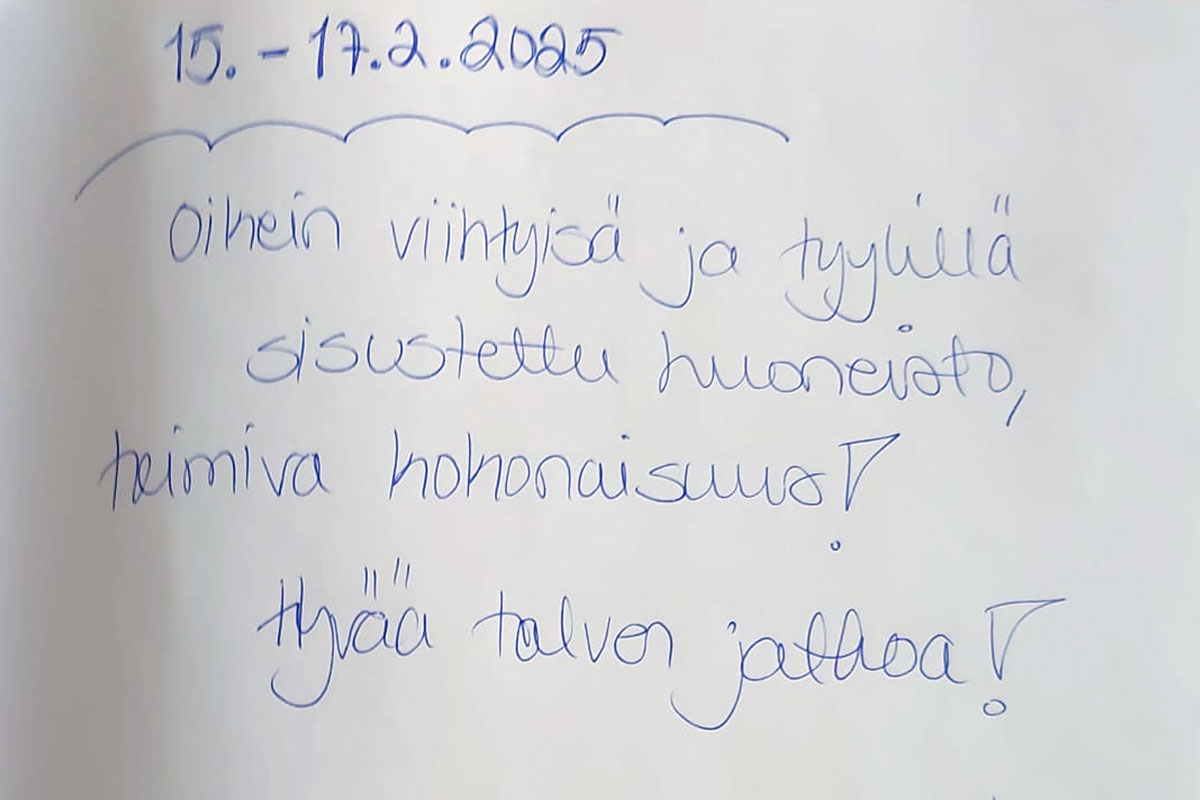 15.-17.2.2025
Oikein viihtyisä ja tyylillä
sisustettu huoneisto,
toimiva kokonaisuus!
Hyvää talven jatkoa!